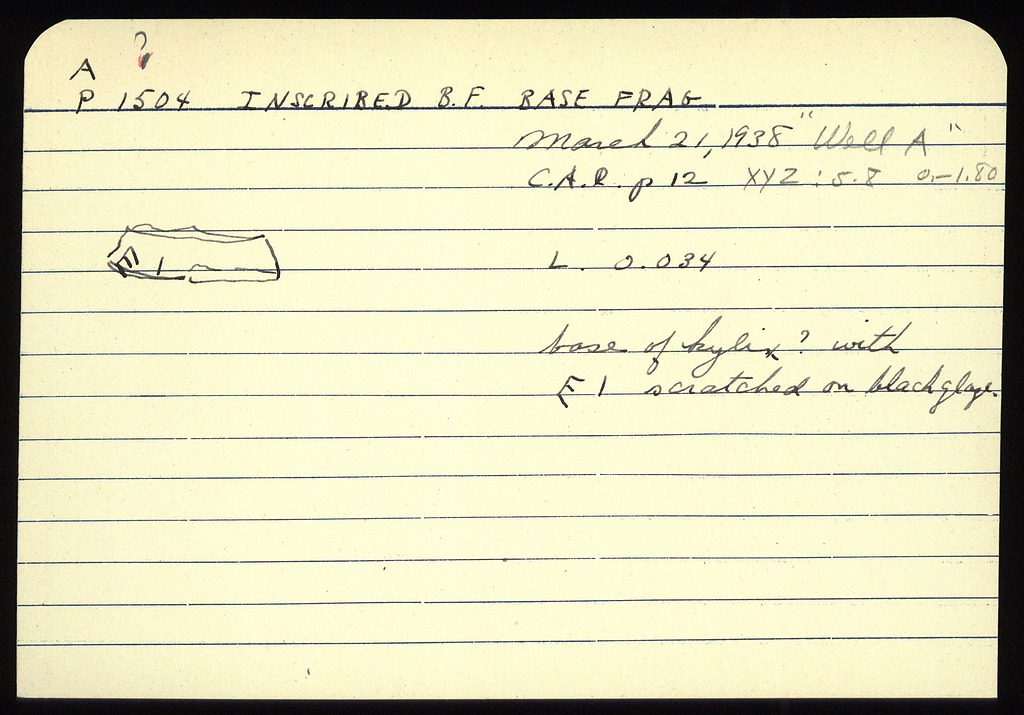 A ?
P 1504 INSCRIBED B.F. BASE FRAG
March 21, 1938 "Well A"
C.A.R. p 12 XYZ : 5.8 0.–1.80
E I
L. 0.034
base of kylix? with
E I scratched on black glaze.